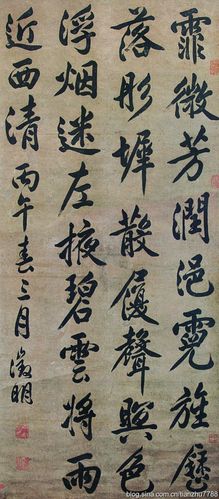 霏微芳潤浥霓旌歷
落彤墀散履聲暝色
浮烟迷左掖碧雲將雨
近西清丙午春三月徵明
blog.sina.com.cn/tianzhu7788